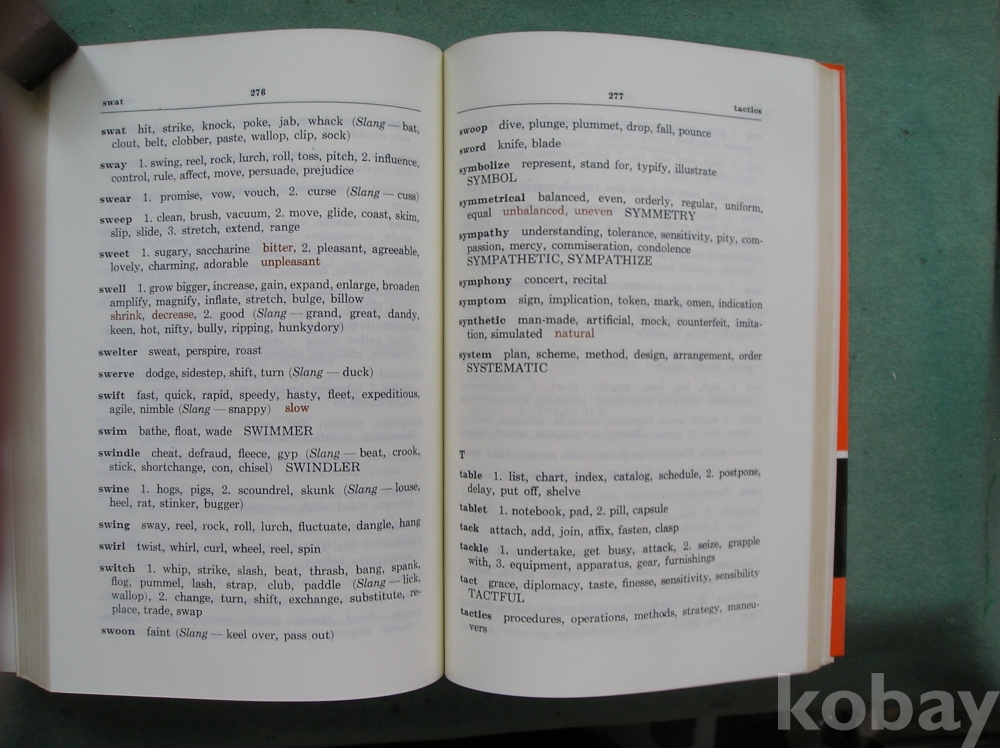 276
swat
swat hit, strike, knock, poke, jab, whack (Slang — bat,
clout, belt, clobber, paste, wallop, clip, sock)
sway 1. swing, reel, rock, lurch, roll, toss, pitch, 2. influence,
control, rule, affect, move, persuade, prejudice
swear 1. promise, vow, vouch, 2. curse (Slang — cuss)
sweep 1. clean, brush, vacuum, 2. move, glide, coast, skim,
slip, slide, 3. stretch, extend, range
sweet 1. sugary, saccharine bitter, 2. pleasant, agreeable,
lovely, charming, adorable unpleasant
swell 1. grow bigger, increase, gain, expand, enlarge, broaden
amplify, magnify, inflate, stretch, bulge, billow
shrink, decrease, 2. good (Slang — grand, great, dandy,
keen, hot, nifty, bully, ripping, hunkydory)
swelter sweat, perspire, roast
swerve dodge, sidestep, shift, turn (Slang — duck)
swift fast, quick, rapid, speedy, hasty, fleet, expeditious,
agile, nimble (Slang — snappy) slow
swim bathe, float, wade SWIMMER
swindle cheat, defraud, fleece, gyp (Slang — beat, crook,
stick, shortchange, con, chisel) SWINDLER
swine 1. hogs, pigs, 2. scoundrel, skunk (Slang — louse,
heel, rat, stinker, bugger)
swing sway, reel, rock, roll, lurch, fluctuate, dangle, hang
swirl twist, whirl, curl, wheel, reel, spin
switch 1. whip, strike, slash, beat, thrash, bang, spank,
flog, pummel, lash, strap, club, paddle (Slang — lick,
wallop), 2. change, turn, shift, exchange, substitute, re-
place, trade, swap
swoon faint (Slang — keel over, pass out)
277
tactics
swoop dive, plunge, plummet, drop, fall, pounce
sword knife, blade
symbolize represent, stand for, typify, illustrate
SYMBOL
symmetrical balanced, even, orderly, regular, uniform,
equal unbalanced, uneven SYMMETRY
sympathy understanding, tolerance, sensitivity, pity, com-
passion, mercy, commiseration, condolence
SYMPATHETIC, SYMPATHIZE
symphony concert, recital
symptom sign, implication, token, mark, omen, indication
synthetic man-made, artificial, mock, counterfeit, imita-
tion, simulated natural
system plan, scheme, method, design, arrangement, order
SYSTEMATIC
T
table 1. list, chart, index, catalog, schedule, 2. postpone,
delay, put off, shelve
tablet 1. notebook, pad, 2. pill, capsule
tack attach, add, join, affix, fasten, clasp
tackle 1. undertake, get busy, attack, 2. seize, grapple
with, 3. equipment, apparatus, gear, furnishings
tact grace, diplomacy, taste, finesse, sensitivity, sensibility
TACTFUL
tactics procedures, operations, methods, strategy, maneu-
vers
kobay